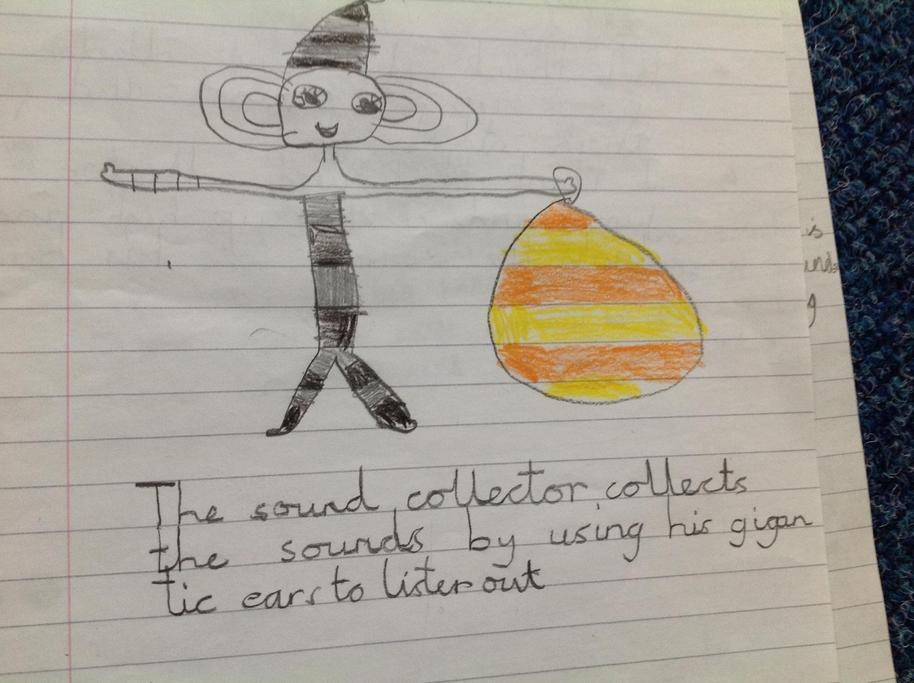 The sound collector collects
the sounds by using his gigan
tic ears to listen out
is